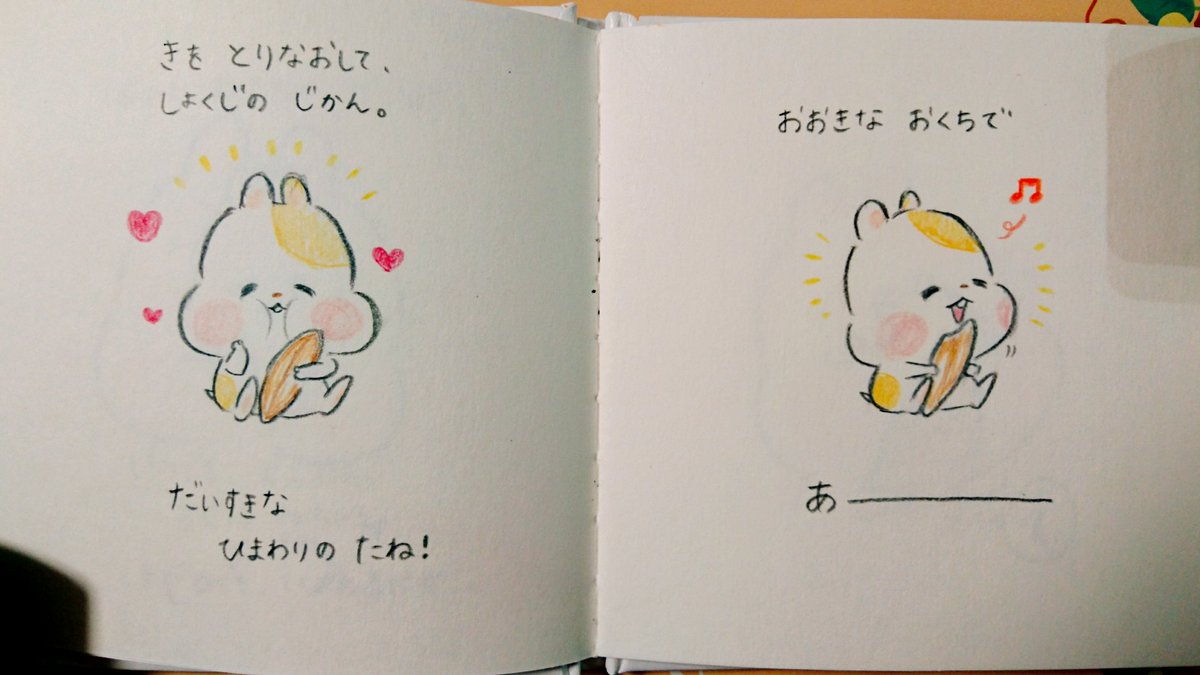 きを とりなおして、
しょくじの じかん。
だいすきな
ひまわりの たね!
おおきな おくちで
あ――――